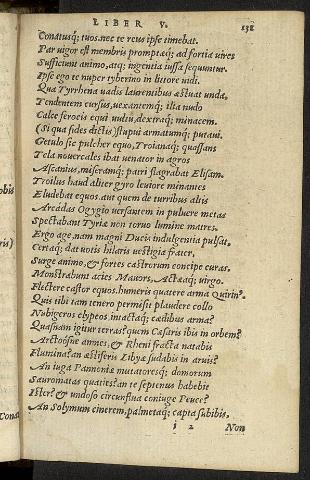 LIBER V. 138
Conatusq; tuos. nec te reus ipse timebat.
Par uigor est membris promptaq; ad fortia uires
Sufficiunt animo, atq; ingentia iussa sequuntur.
Ipse ego te nuper tyberino in littore uidi.
Qua Tyrrhena uadis laurentibus æstuat unda,
Tendentem cursus, uexantemq; illa nudo
Calce ferocis equi uultu, dextraq; minacem.
(Si qua fides dictis) stupui armatumq; putaui.
Getulo sic pulcher equo, Troianaq; quassans
Tela nouercales ibat uenator in agros
Ascanius, miseramq; patri flagrabat Elisam.
Troilus haud aliter gyro leuiore minantes
Eludebat equos. aut quem de turribus altis
Arcadas Ogygio uersantem in puluere metas
Spectabant Tyriæ non toruo lumine matres.
Ergo age, nam magni Ducis indulgentia pulsat,
Certaq; dat uotis hilaris uestigia frater,
Surge animo, & fortes castrorum concipe curas.
Monstrabunt acies Mauors, Actæaq; uirgo.
Flectere castor equos. humeris quatere arma Quirin?.
Quis tibi tam tenero permisit plaudere collo
Nubigeros clypeos, intactaq; cædibus arma?
Quasnam igitur terras? quem Cæsaris ibis in orbem?
Arctoosne amnes, & Rheni fracta natabis
Flumina? an æstiferis Libyæ sudabis in aruis?
An iuga Pannoniæ mutatoresq; domorum
Sauromatas quaties? an te septenus habebit
Ister? & undoso circunflua coniuge Peuce?
An Solymum cinerem, palmetaq; capta subibis,
i 2 Non